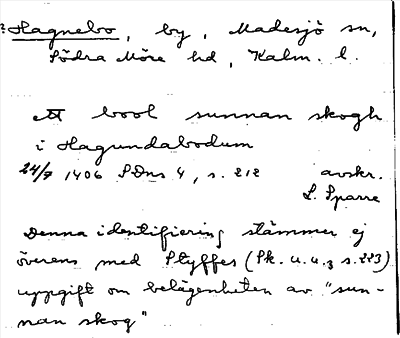 ? Hagnebo, by, Madesjö sn,
Södra Möre hd, Kalm. l.
ett bool sunnan skogh
i Hagundabodum
24/7 1406 SDns 4, s. 212 avskr.
L. Sparre
Denna identifiering stämmer ej
överens med Styffes (Sk. u. u.3 s. 223)
uppgift om belägenheten av "sun-
nan skog"